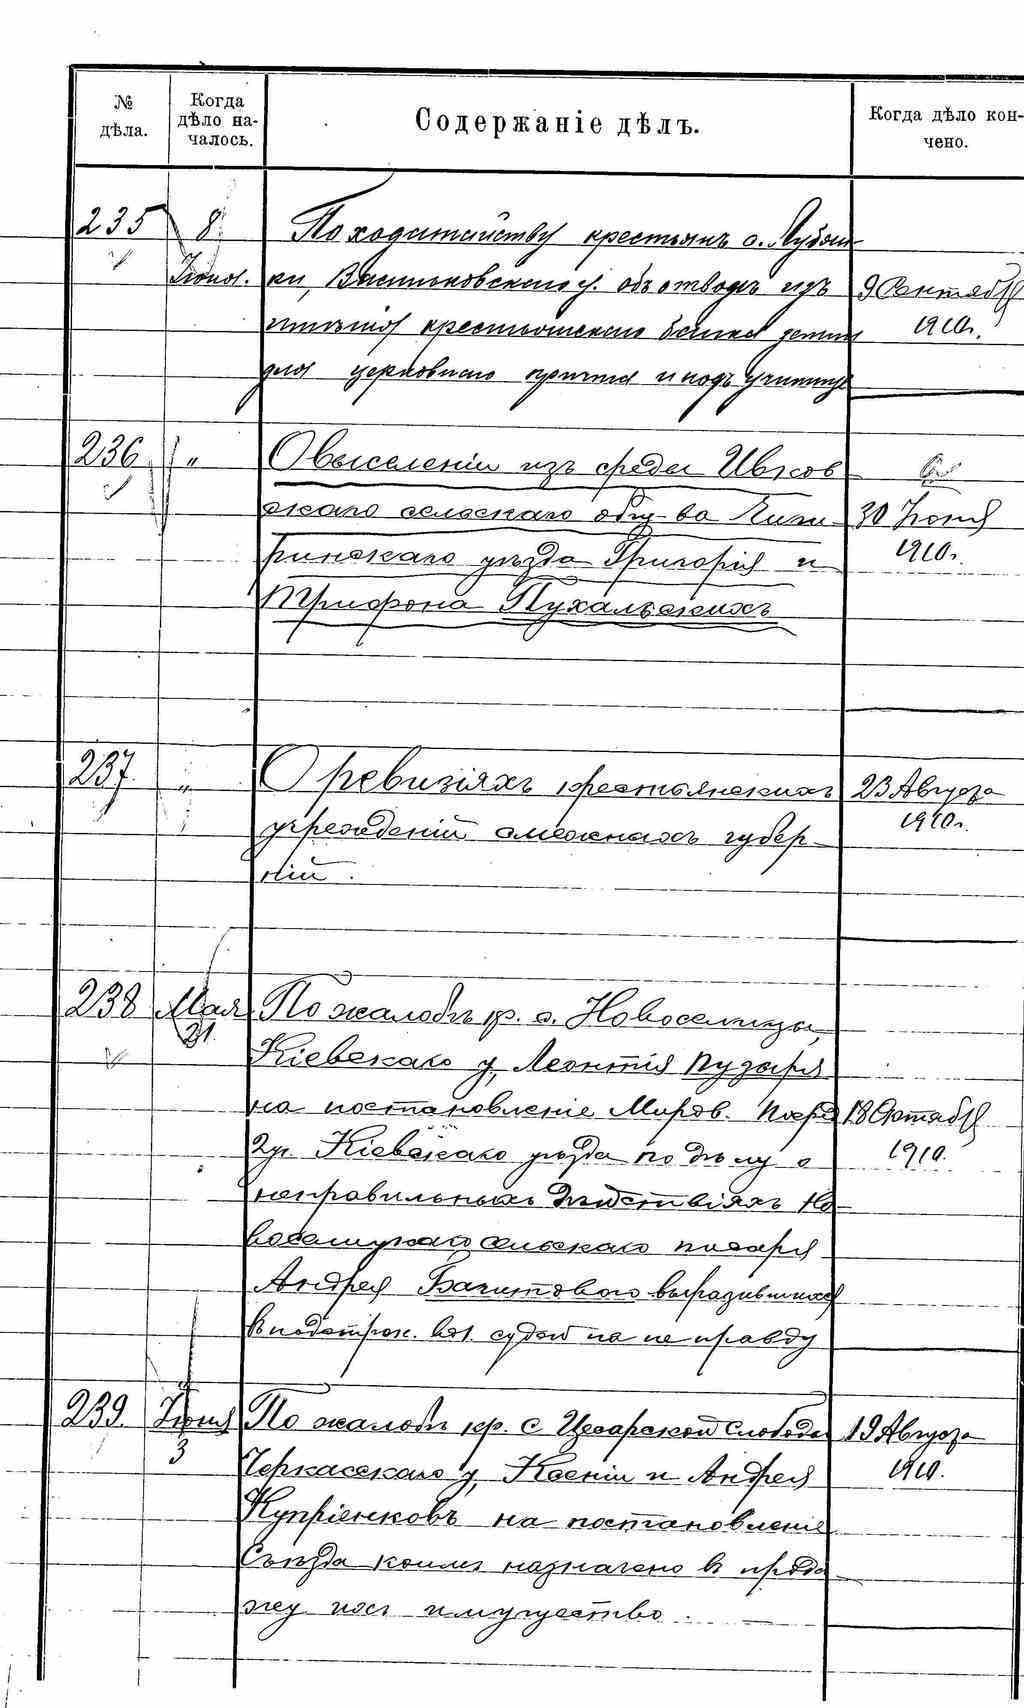 №
дѣла.
Когда
дѣло на-
чалось.
Содержаніе дѣлъ.
Когда дѣло кон-
чено.
235
8
Іюня.
По ходатайству крестьянъ с.
ки, Васильковскаго у. объ отводѣ изъ
крестьянскаго банка земли
для церковнаго причта и подъ училище
9 Сентября
1910г.
236
"
О выселеніи изъ среды Ивков
скаго сельскаго общ-ва Чиги-
ринскаго уѣзда Григорія и
Трифона Пухальскихъ
30 Іюня
1910г.
237
"
О ревизіяхъ крестьянскихъ
учрежденій смежныхъ губер-
ній.
23 Августа
1910г.
238
Мая
21
По жалобѣ кр. с. Новоселицы,
Кіевскаго у, Леонтія Пузыря
на постановленіе Миров. Посред
2 уч. Кіевскаго уѣзда по дѣлу о
неправильныхъ дѣйствіяхъ Но-
воселицкаго сельскаго писаря
Андрея выразившихся
судей на не правду
18 Октября
1910.
239.
Іюня
3
По жалобѣ кр. с Цесарской Слободы
Черкасскаго у, Ксеніи и Андрея
Купріенковъ на постановленіе
Съѣзда коимъ назначено в прода-
жу ихъ имущество.
19 Августа
1910.